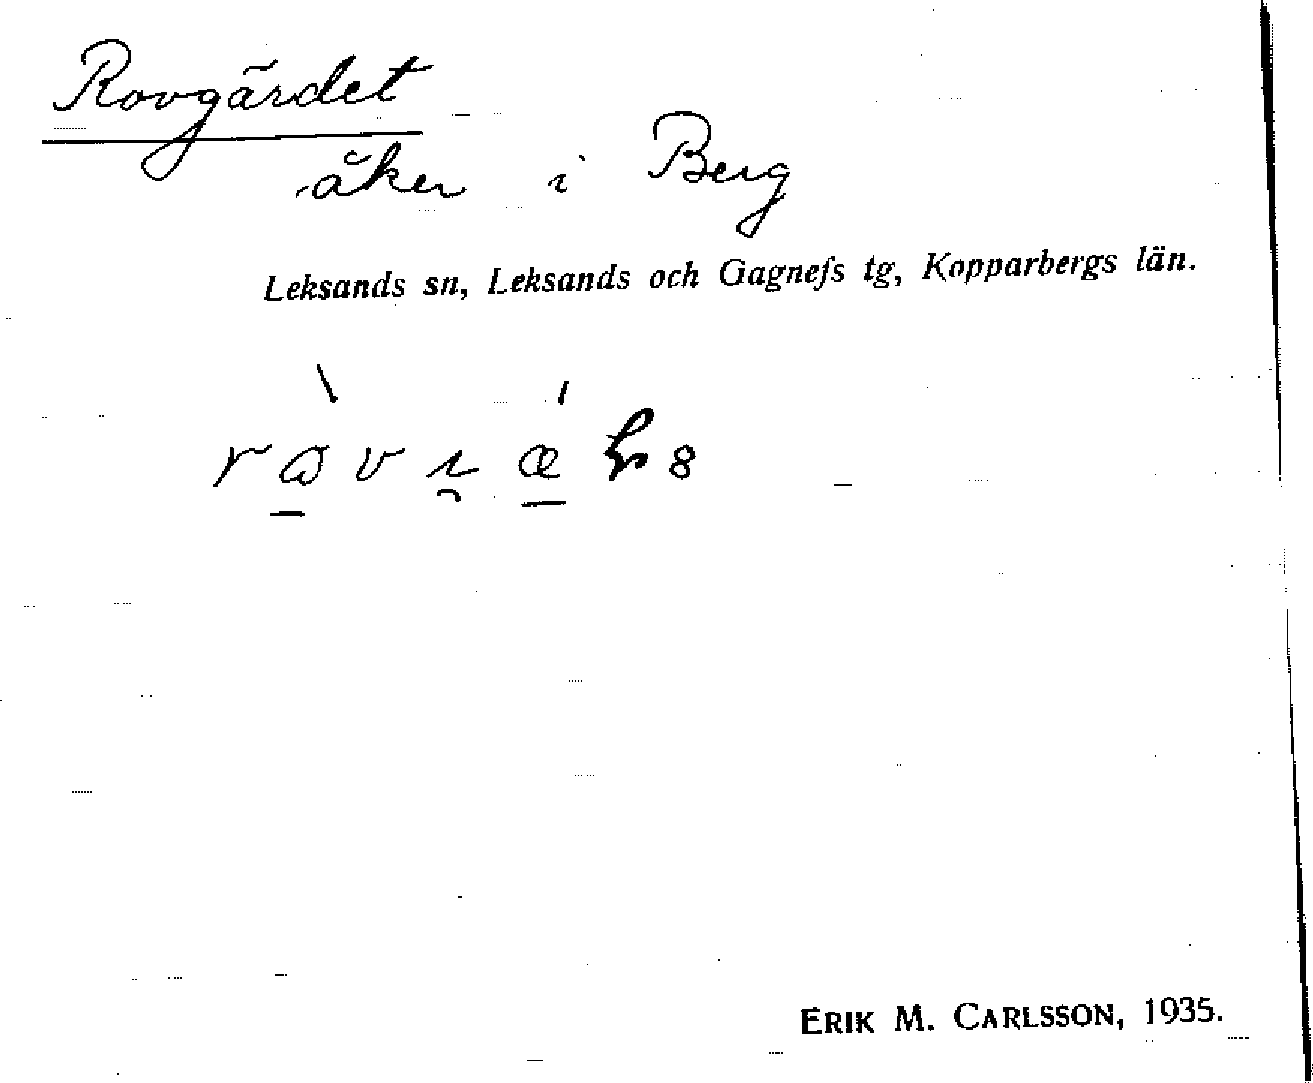 Rovgärdet
åker i Berg
Leksands sn, Leksands och Gagnefs tg, Kopparbergs län.
ERIK M. CARLSSON, 1935.